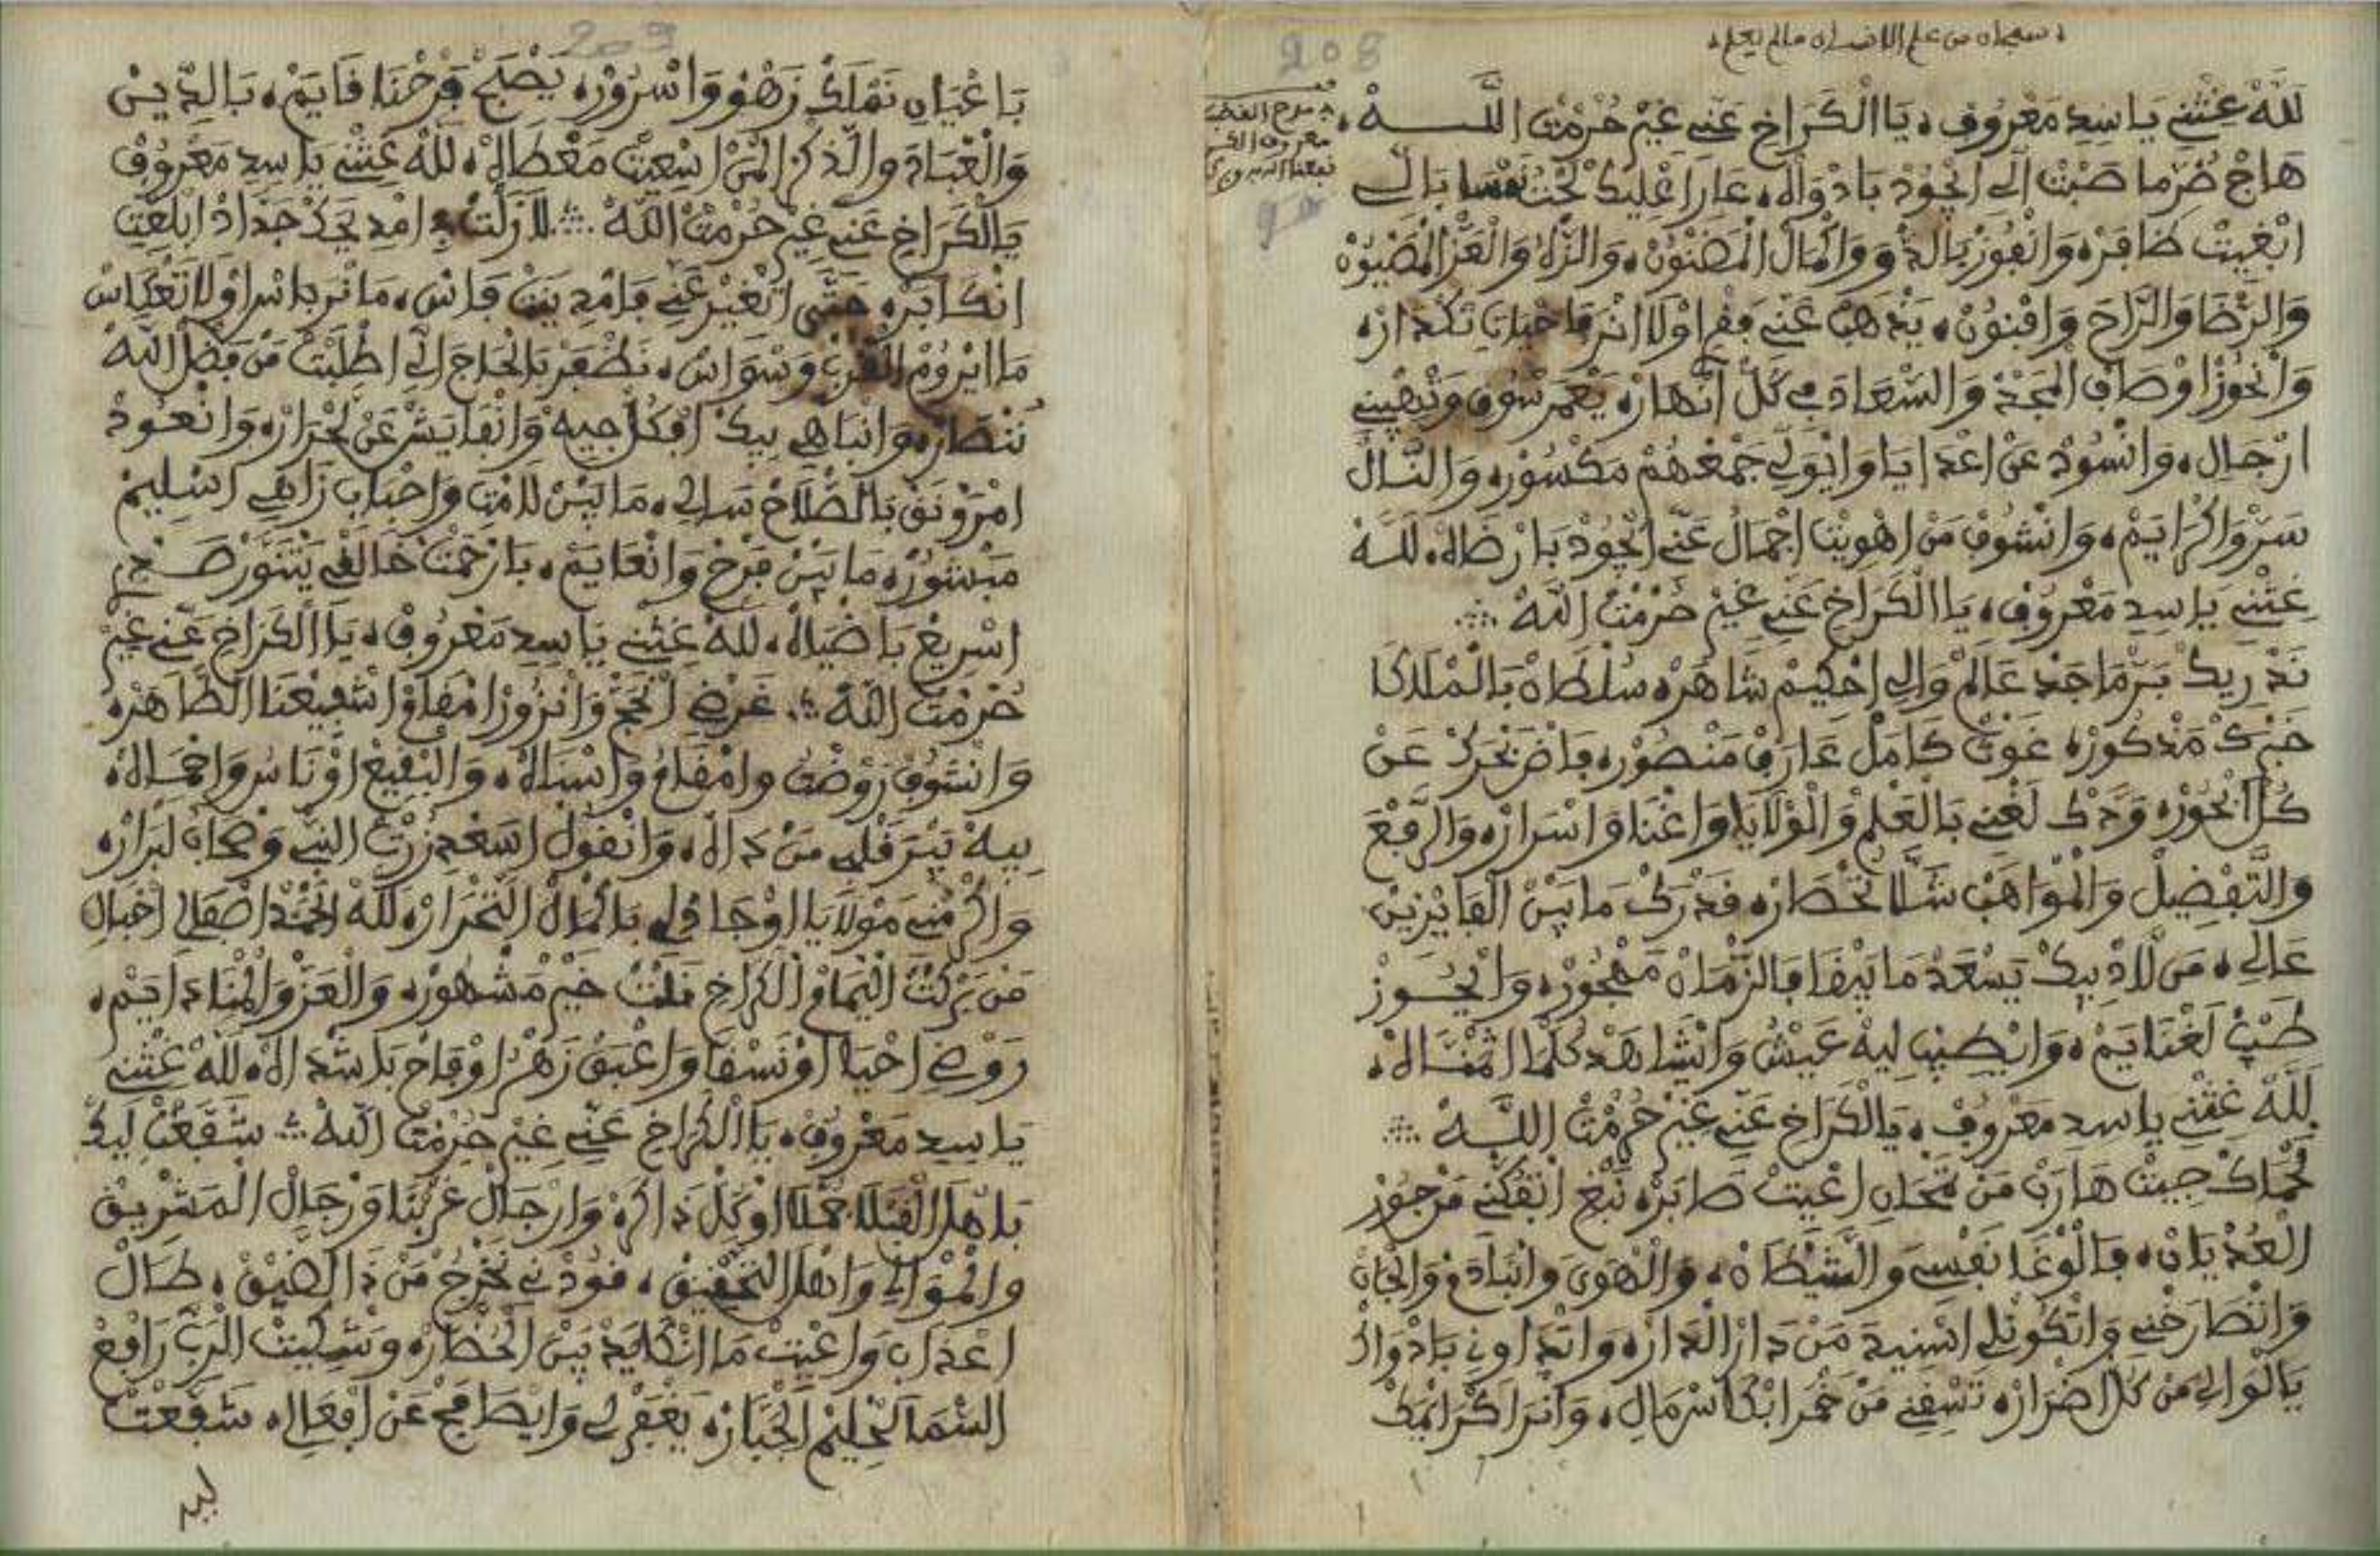 208
سبحان من علم الانسان ما لم يعلم
مدح القطب
معروف الكر
نبعنا الله به
لَلَّهْ غِثْنِي يَا سِيدِ مَعْرُوفْ، يَا الْكَرَاخِ عَنِّي غِيرْ حُرْمْتْ اللَّـــهْ،
هَاجْ ضُرّ مَا صَبْتْ الِّي ايْجُودْ بَادْوَاهْ، عَارَا عْلِيكْ بَالِّي
ابْغِيتْ ظَافِرْ، وَانْفُوزْ وَالْمَالْ الْمَصْيُونْ، وَالْعَزّ الْمَصْيُونْ
وَالرّْضَا وَالرَّاحَ وَافْنُونْ، يَذْهَبْ عَنِّي وْلَا انْرَ تَكْدَارْ،
وَانْحُوزْ اوْصَافْ الْمَجْدْ وَالسّْعَادَ فِي كُلّ انْهَارْ، يَعْمَرْ سُوقِ وَتْبْهِينِي
ارْجَالِ، وَانْسُودْ عَنْ اعْدَايَا وَايْوَلِّي جَمْعْهُمْ مَكْسُورْ، وَانَّالْ
سَرّْ وَاكْرَايَمْ، وَانْشُوفْ مَنْ اهْوِيتْ اجْمَالُ عَنِّي ايْجُودْ بَارْضَاهْ، لَلَّهْ
غِثْنِي يَا سِيدِ مَعْرُوفْ، يَا الْكَرَاخِ عَنِّي غِيرْ حُرْمْتْ اللَّهْ
نَدْرِيكْ بَرّ مَاجَدْ عَالَمْ وَالِي احْكِيمْ شَاهَرْ، سُلْطَانْ بَالْمْلَاكَا
خَبْرَكْ مَذْكُورْ، غَوْثْ كَامَلْ عَارَفْ مَنْصُورْ، فَاضْ بَحْرَكْ عَنْ
كُلّ ابْحُورْ، وَدّْكْ لَغْنِي بَالْعَلْمْ وَالْوْلَايَا وَاغْنَا وَاسْرَارْ، وَالرَّفْعَ
وَالتَّفْضِيلْ وَالْمْوَاهَبْ شَلَّا تَحْصَارْ، قَدْرَكْ مَا بِينْ الْفَايْزِينْ
عَالِي، مَنْ لَادْ بِيكْ يَسْعَدْ مَا يَبْقَا فَالزّْمَانْ مَهْجُورْ، وَايْحُـــوزْ
طَبّْ لَغْنَايَمْ، وَايْطِيبْ لِيهْ عَيْشُ وَايْشَاهَدْ كُلّْمَا اتْمَنَّـــاهْ،
لَلَّهْ غِثْنِي يَا سِيدِ مَعْرُوفْ، يَالْكَرَاخِ عَنِّي غِيرْ حُرْمْتْ اللَّـــهْ
لَحْمَاكْ جِيتْ هَارَبْ مَنْ مْحَانِ اعْيِيتْ صَابَرْ، نَبْغِ اتْفُكّْنِي مَنْ جُورْ
الْعُدْيَانْ، فَالْوْغَا نَفْسِي وَالشِّيطَانْ، وَالْهْوَى وَالْجَانْ
وَاتْكُونْ لِي اسْنِيدَ مَنْ دَارْ الدَّارْ، وَاتْدَاوِنِي بَادْوَاكْ
يَالْوَالِي مَنْ كُلّ اضْرَارْ، تَسْقِنِي مَنْ خَمْرَ ابْكَاسْ مَالِي، وَانْرَ اكْرَايْمَكْ
209
بَاعْيَانِ نَمْلَكْ زَهْوْ وَاسْرُورْ، يَصْبَحْ فَرْحْنَا قَايَمْ، بَالدِّينْ
وَالْعْبَادَ وَالذّكْرْ الْمَنْ اسْعِيتْ مَعْطَاهْ، لَلَّهْ غِثْنِي يَا سِيدِ مَعْرُوفْ
يَالْكَرَاخِ عَنِّي غِيرْ حُرْمْتْ اللَّهْ لَا زَلْتْ فِ امْدِيحَكْ
انْكَابَرْ، حَتَّى اتْغِيرْ عَنِّي فَامْدِينَتْ فَاسْ، مَا نْرَ بَاسْ اوْلَا تَعْكَاسْ
مَا ايْرُومْ الْقَرْبْ وَسْوَاسْ، نَظْفَرْ بَالْحَاجَ الِّي اطْلَبْتْ مَنْ فَضْلْ اللَّهْ
نَنْصَارْ، وَانْبَاهِي بِيكْ افْكُلّ جِيهْ وَانْفَايَشْ عَنْ لَحْرَارْ، وَانْعُودْ
امْرَوْنَقْ بَالصّْلَاحْ سَالِي، مَا بِينْ لَامْتِي وَاحْبَابِ زَاهِي اسْلِيمْ
مَبْشُورْ، مَا بِينْ فَرْحْ وَانْعَايَمْ، بَارَحْمَتْ خَالْقِي يَتْنَوَّرْ صَـــدْرِي
اسْرِيعْ بَاضْيَاهْ، لَلَّهْ غِثْنِي يَا سِيدِ مَعْرُوفْ، يَا الْكَرَاخِ عَنِّي غِيرْ
حُرْمْتْ اللَّهْ غَرْضِي انْحَجّْ وَانْزُورْ امْقَامْ اشْفِيعْنَا الطَّاهَرْ،
وَانْشُوفْ رَوْضْتُ وَامْقَامُ وَاسْنَاهْ، وَالْبْقِيعْ اوْنَاسُ وَاحْمَـــاهْ،
بِيهْ يَبْرَ قَلْبِي مَنْ دَاهْ، وَانْقُولْ اسَعْدِي زُرْتْ النّبِي وَصْحَابُ لَبْرَارْ،
وَاكْرَمْنِي مَوْلَايَا اوْجَادْ لِي بَاكْمَالْ التَّحْرَارْ، لَلَّهْ الْحَمْدْ اصْفَالِي احْبَالِ
مَنْ بَرْكْتْ الْهُمَامْ الْكَرَاخِ نَلْتْ خِيرْ مَشْهُورْ، وَالْعَزّْ وَالْهْنَا دَايَمْ،
رَوْضِي احْيَا اوْنَسْقَا وَاعْبَقْ زَهْرُ اوْفَاحْ بَاشْدَاهْ، لَلَّهْ غِثْنِي
يَا سِيدِ مَعْرُوفْ، يَا الْكَرَاخِ عَنِّي غِيرْ حُرْمْتْ اللَّهْ شَفَّعْتْ لِيكْ
بَاهْلْ الْفْضَلْ جَمْلَا اوْكُلّ ذَاكَرْ، وَارْجَالْ غَرْبْنَا وَرْجَالْ الْمَشْرِيقْ
وَالْمْوَالِي وَاهْلْ التَّحْقِيقْ، قُودْنِي نَخْرُجْ مَنْ ذَا الضِّيقْ، طَالْ
اعْذَابِ وَاعْيِيتْ مَا انْكَايَدْ بِينْ الْحُضَّارْ، وَشْكِيتْ الْرَبّ رَافَعْ
السّْمَا الْحْلِيمْ الْجَبَّارْ، يَغْفَرْ لِي وَايْصَامَحْ عَنْ افْعَالِي، شَفَّعْتْ
لِيك